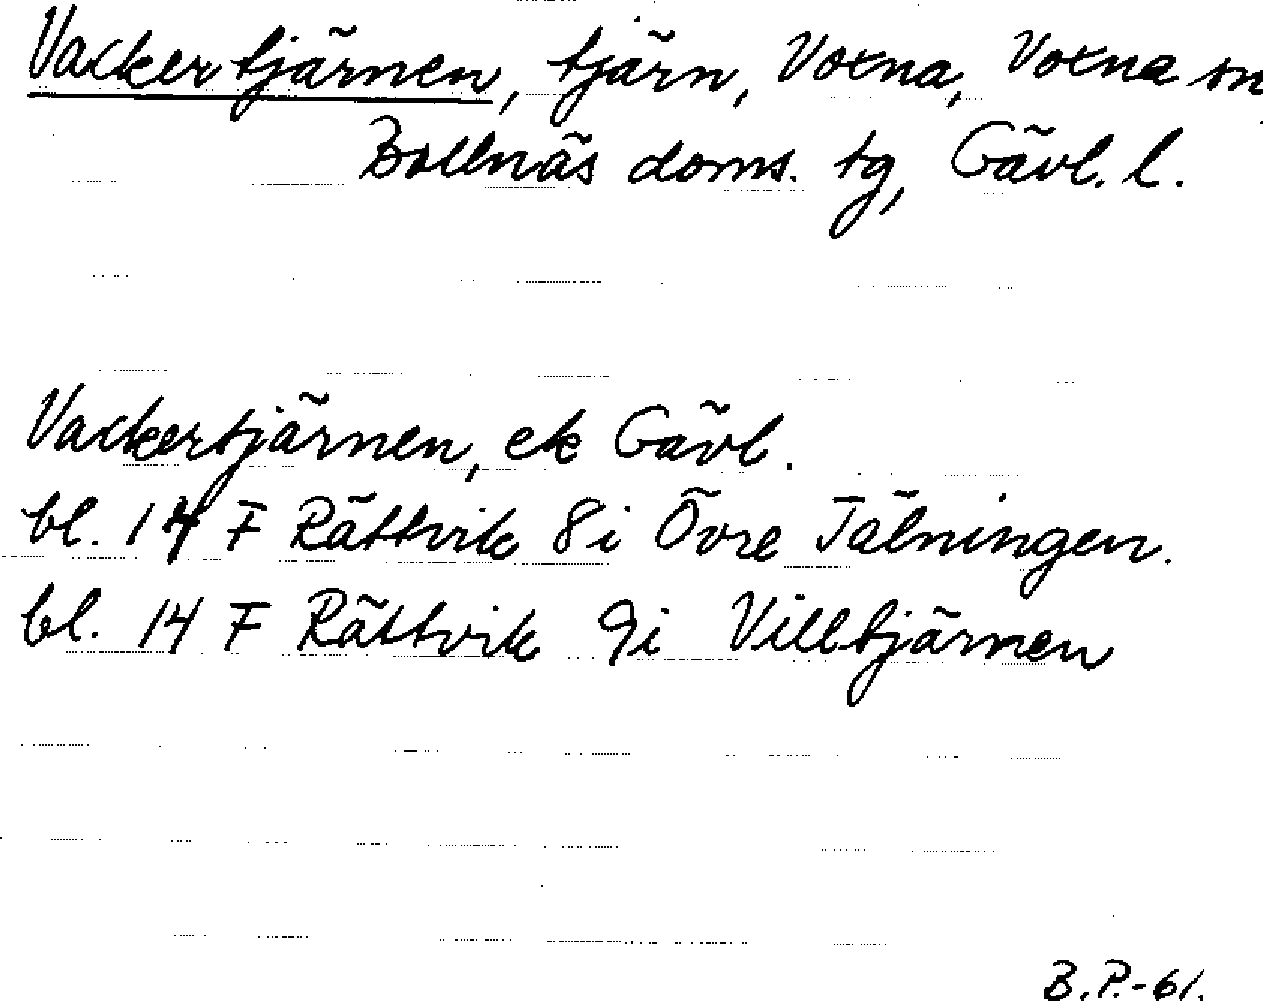 Vackertjärnen, tjärn, Voxna, Voxna sn
Bollnäs doms. tg, Gävl. l.
Vackertjärnen, ek Gävl.
bl. 14 F Rättvik 8i Övre Tälningen.
bl. 14 F Rättvik 9i Villtjärnen
B.P.-61.